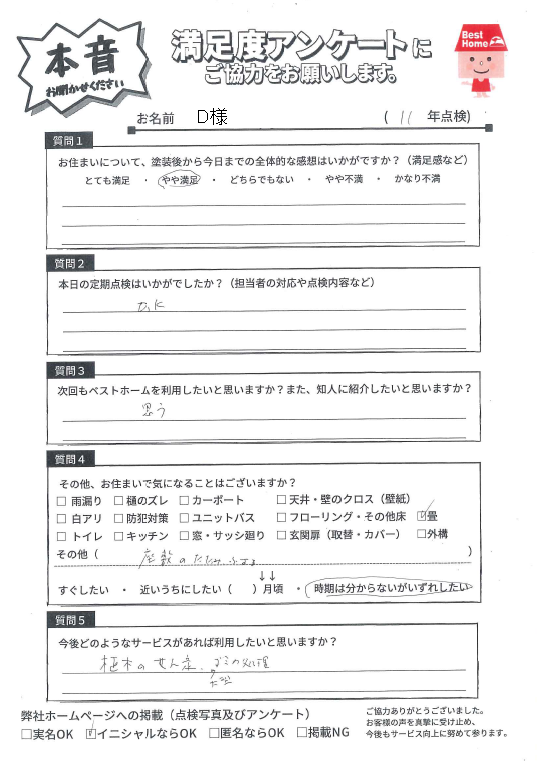 本音
お聞かせください
満足度アンケートに
ご協力をお願いします。
Best
Home
お名前 D様 ( 11 年点検)
質問1
お住まいについて、塗装後から今日までの全体的な感想はいかがですか?(満足感など)
とても満足 ・ やや満足 ・ どちらでもない ・ やや不満 ・ かなり不満
質問2
本日の定期点検はいかがでしたか?(担当者の対応や点検内容など)
O,K
質問3
次回もベストホームを利用したいと思いますか?また、知人に紹介したいと思いますか?
思う
質問4
その他、お住まいで気になることはございますか?
□ 雨漏り □ 樋のズレ □ カーポート □ 天井・壁のクロス(壁紙)
□ 白アリ □ 防犯対策 □ ユニットバス □ フローリング・その他床 ☑畳
□ トイレ □ キッチン □ 窓・サッシ廻り □ 玄関扉(取替・カバー) □外構
その他( 座敷のたたみ )
↓↓
すぐしたい ・ 近いうちにしたい( )月頃 ・ 時期は分からないがいずれしたい
質問5
今後どのようなサービスがあれば利用したいと思いますか?
植木のせん定、ゴミの処理
大型
弊社ホームページへの掲載(点検写真及びアンケート)
□実名OK ☑イニシャルならOK □匿名ならOK □掲載NG
ご協力ありがとうございました。
お客様の声を真摯に受け止め、
今後もサービス向上に努めて参ります。